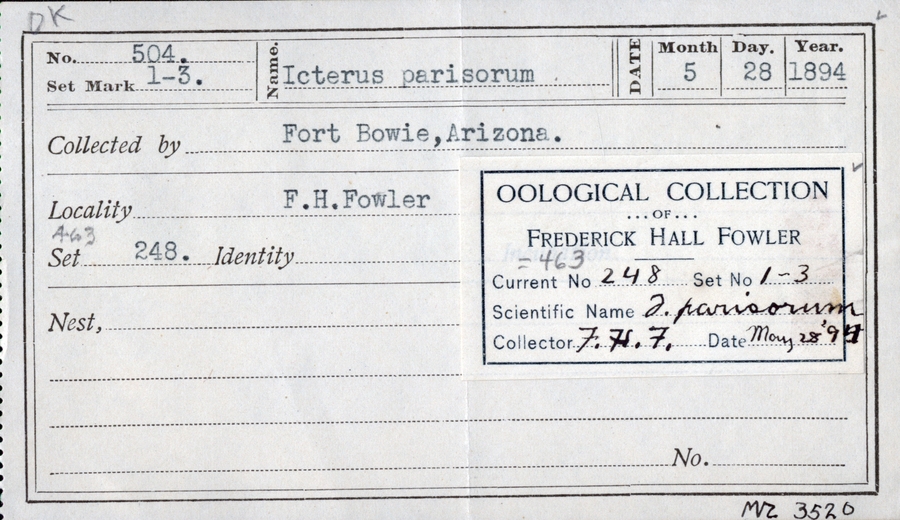 DK
No. 504. Name. Icterus parisorum DATE Month Day. Year.
Set Mark 1-3. 5 28 1894
Collected by Fort Bowie, Arizona.
Locality F.H.Fowler
463
Set 248. Identity
Nest,
No.
OOLOGICAL COLLECTION
...OF...
FREDERICK HALL FOWLER
= 463
Current No 248 Set No 1-3
Scientific Name I. parisorum
Collector F.H.F. Date May 28 '94
MVZ 3520